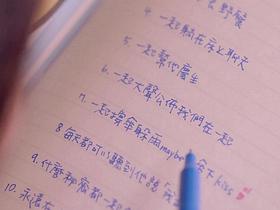 野餐
4. 一起躺在床上聊天
5. 一起幫他慶生
6. 一起大聲公佈我們在一起
7. 一起撐傘躲雨maybe 傘下kiss
8. 每天都可以聽到他說
9. 什麼秘密都一起
10. 永遠在